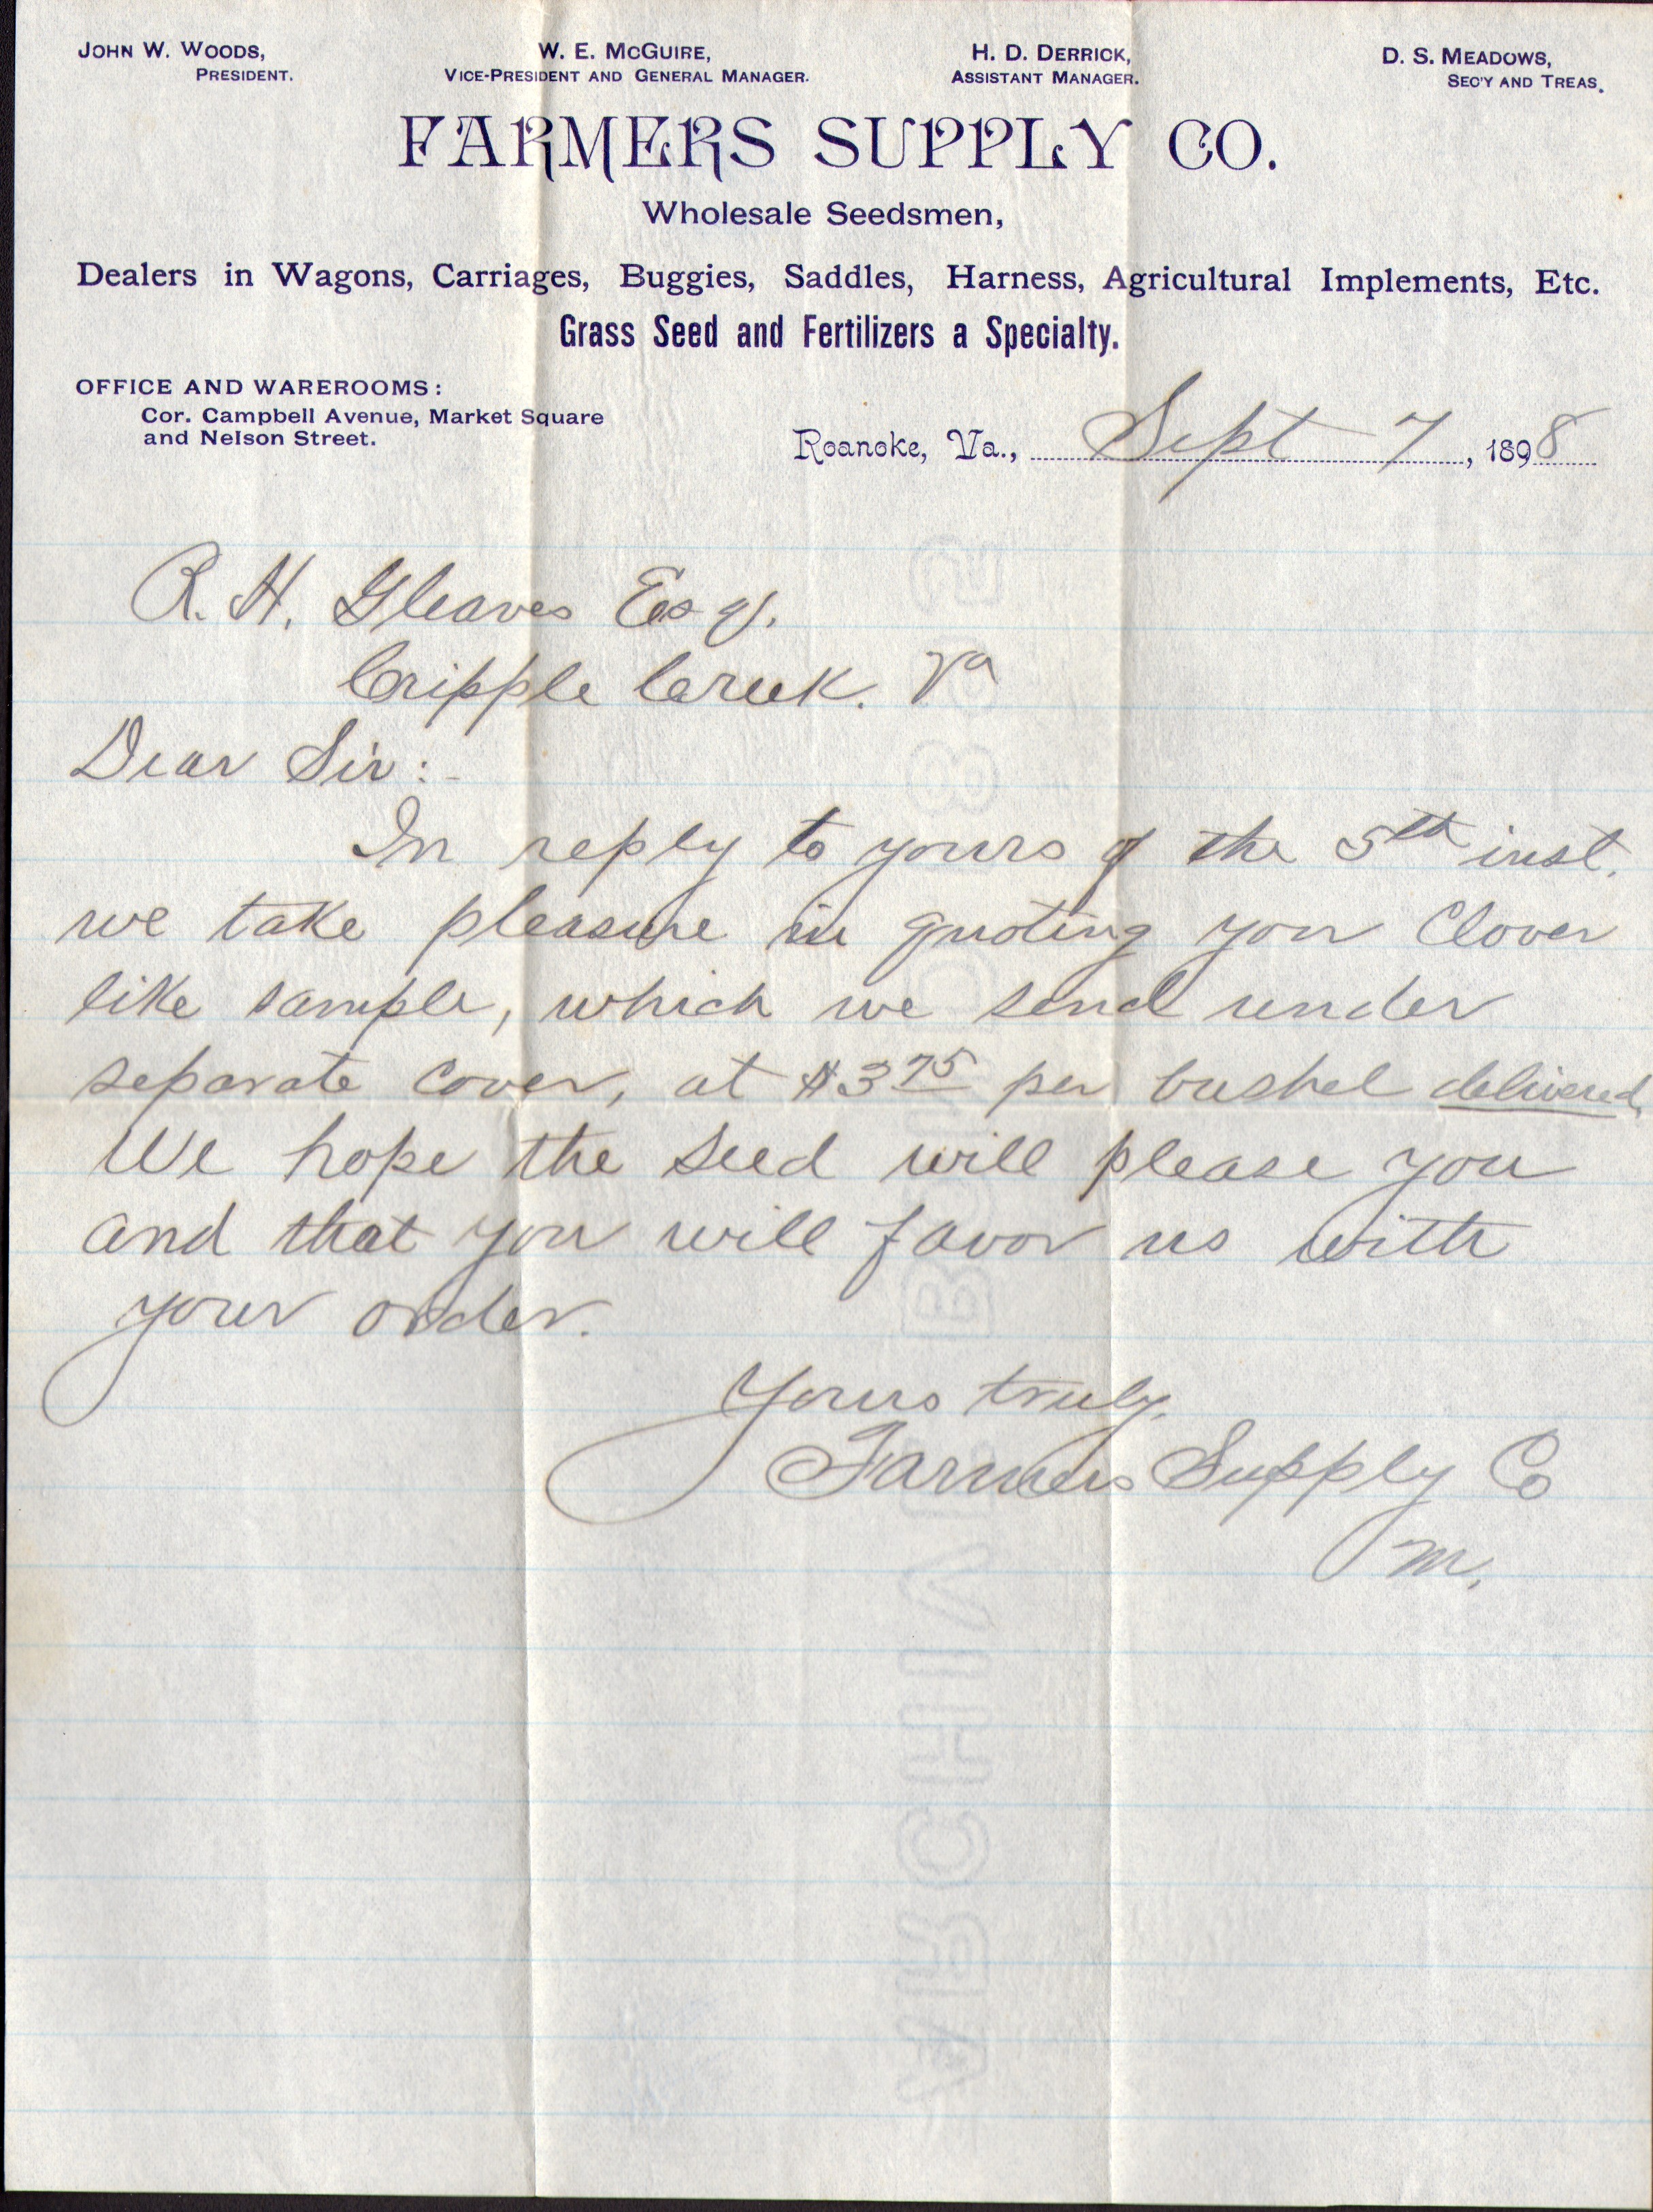 JOHN W. WOODS,
PRESIDENT.
W. E. MCGUIRE,
VICE-PRESIDENT AND GENERAL MANAGER.
H. D. DERRICK,
ASSISTANT MANAGER.
D. S. MEADOWS,
SEC'Y AND TREAS.
FARMERS SUPPLY CO.
Wholesale Seedsmen,
Dealers in Wagons, Carriages, Buggies, Saddles, Harness, Agricultural Implements, Etc.
Grass Seed and Fertilizers a Specialty.
OFFICE AND WAREROOMS:
Cor. Campbell Avenue, Market Square
and Nelson Street.
Roanoke, Va., Sept 7, 1898
R. H. Gleaves Esq.
Cripple Creek. Va
Dear Sir:-
In reply to yours of the 5th inst.
we take pleasure in quoting you Clover
like sample, which we send under
separate cover, at $3 75 per bushel delivered.
We hope the seed will please you
and that you will favor us with
your order.
Yours truly,
Farmers Supply Co
M.
ARCHIVE BOND 1892